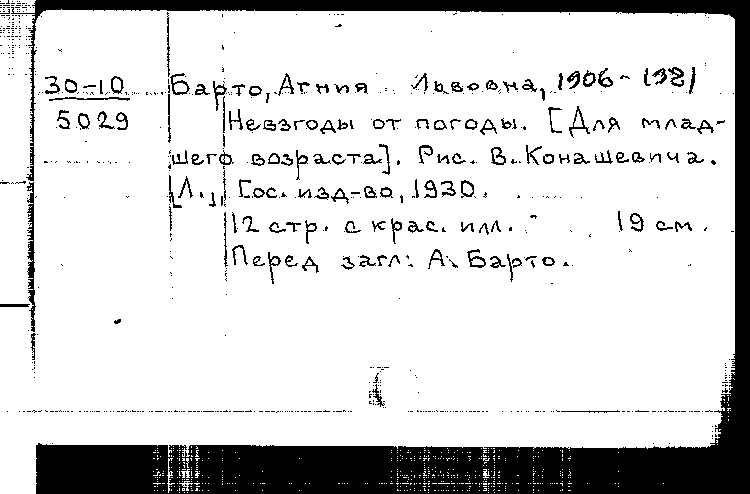 30-10 Барто, Агния Львовна, 1906-1981
5029 Невзгоды от погоды. [Для млад-
шего возраста]. Рис. В. Конашевича.
[Л.], Гос. изд-во, 1930.
12 стр. с крас. илл. 19 см.
Перед загл: А. Барто.